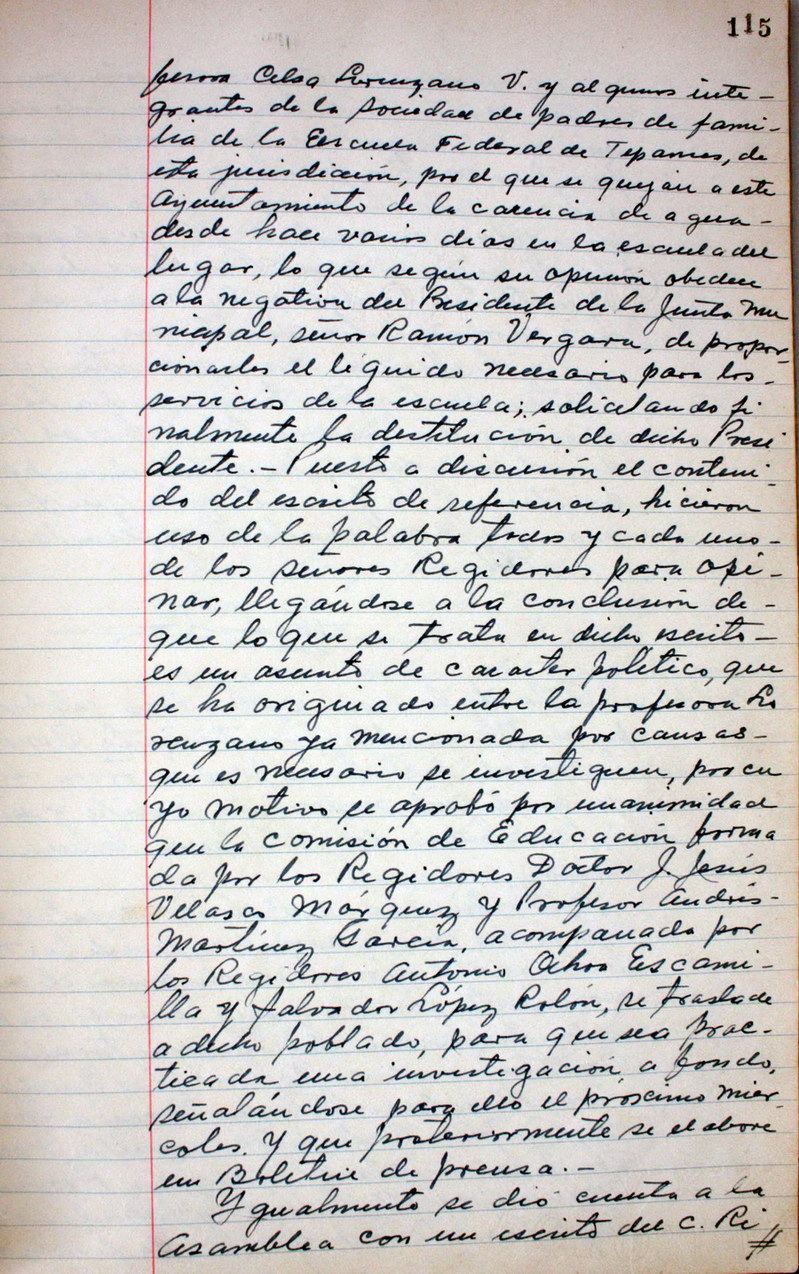 115
fesora Celsa Lorenzano V. y algunos inte-
grantes de la Sociedad de padres de fami-
lia de la Escuela Federal de Tepames, de
esta jurisdicción, por el que se quejan a este
Ayuntamiento de la carencia de agua-
desde hace varios días en la escuela del
lugar, lo que según su opinión obedece
a la negativa del Presidente de la Junta Mu
nicipal, señor Ramón Vergara, de propor-
cionarles el líquido necesario para los-
servicios de la escuela; solicitando fi
nalmente la destitución de dicho Presi
dente.- Puesto a discusión el conteni-
do del escrito de referencia, hicieron
uso de la palabra todos y cada uno-
de los señores Regidores para opi-
nar, llegándose a la conclusión de-
que lo que se trata en dicho escrito-
es un asunto de caracter político, que
se ha originado entre la profesora Lo
renzano ya mencionada por causas-
que es necesario se investiguen, por cu
yo motivo se aprobó por unanimidad
que la Comisión de Educación forma
da por los Regidores Doctor J. Jesús
Velasco Márquez y Profesor Andrés-
Martínez García, acompañada por
los Regidores Antonio Ochoa Escami-
lla y Salvador López Rolón, se traslade
a dicho poblado, para que sea prac-
ticada una investigación a fondo,
señalándose para ello el próximo mier-
coles. Y que posteriormente se elabore
un Boletín de prensa.-
Ygualmente se dió cuenta a la
Asamblea con un escrito del C. Ri
#